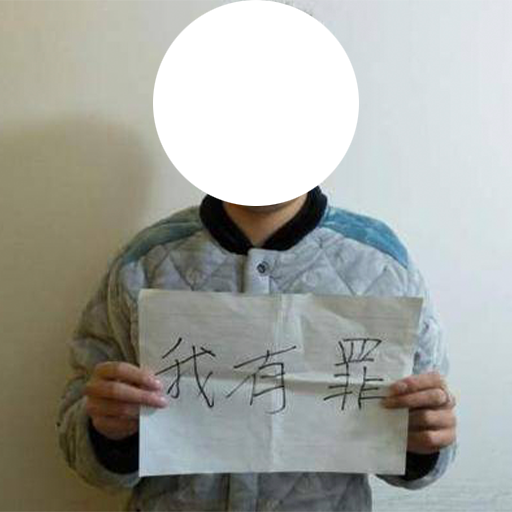 我有罪